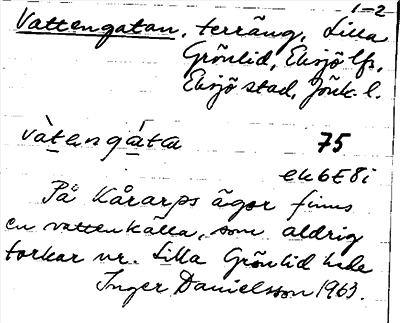 1-2
Vattengatan, terräng, Lilla
Grönlid, Eksjö lfs,
Eksjö stad, Jönk. l.
vàtengáta 75
ek6E8i
På Kårarps ägor finns
en vattenkälla, som aldrig
torkar ur. Lilla Grönlid hade
Inger Danielsson 1963.